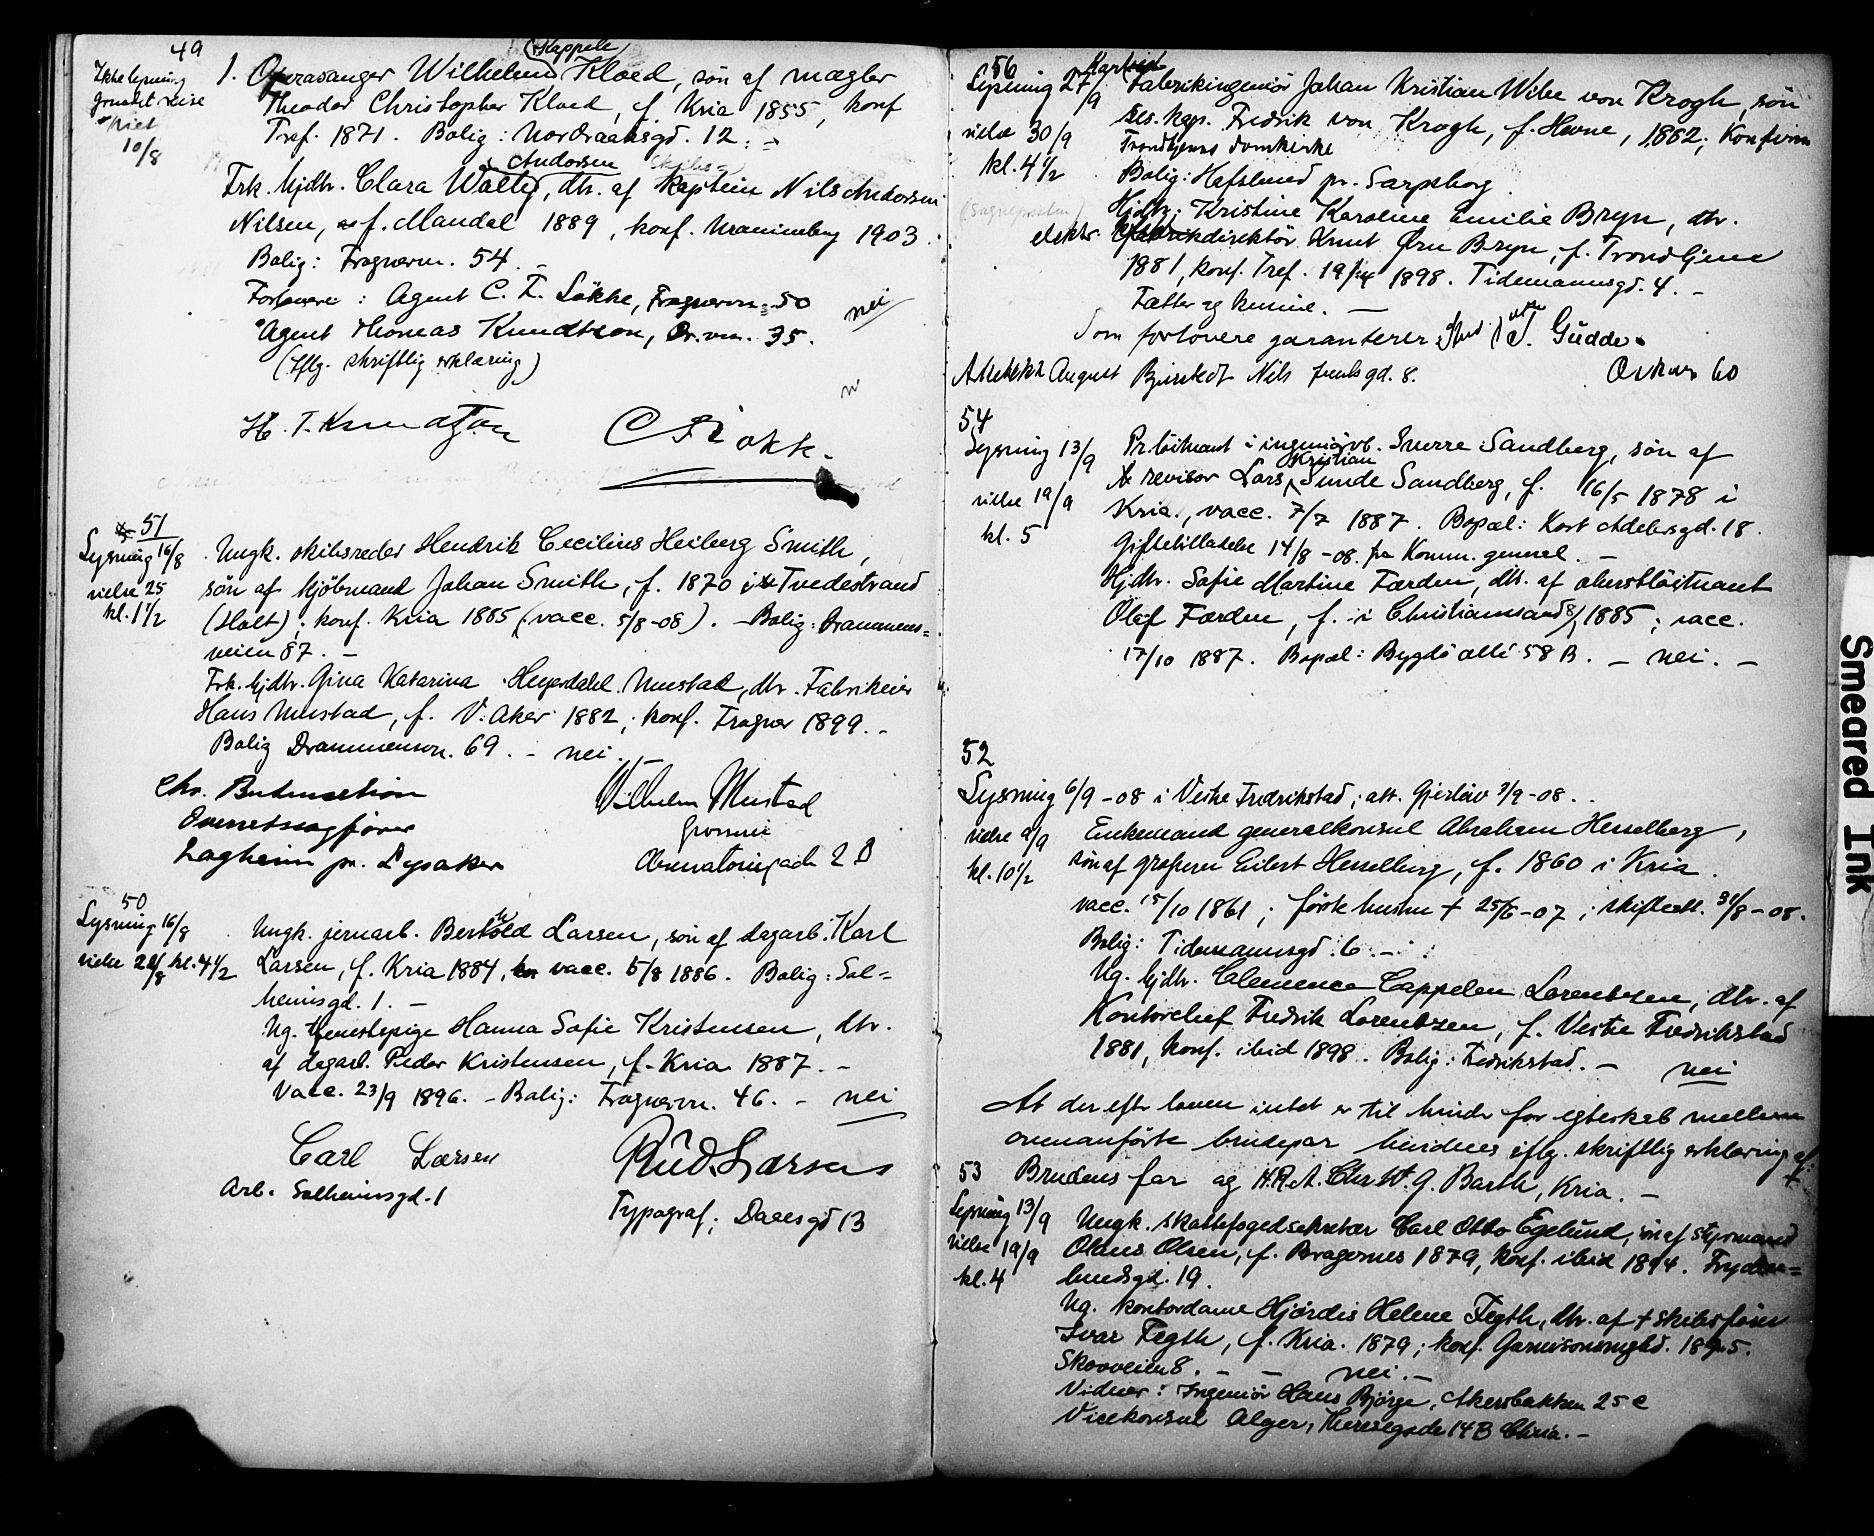 49
Ikke lysning
grundet reise
viet
10/8
(Kappele)
1. Operasanger Wilhelm Kloed, søn af mægler
Theodor Christopher Kloed, f. Kria 1855, konf
Tref. 1871. Bolig: Nordraaksgd. 12. -
Andorsen
Frk. hjdtr. Clara Wally, dtr. af kaptein Nils Andorsen
Nilsen, f. Mandal 1889, konf. Uranienborg 1903.
Bolig: Frognervn. 54. -
Forlovere: Agent C. F. Løkke, Frognervn. 50
Agent Thomas Knudtzon, Dr.vn. 35. nei
(Iflg. skriftlig erklæring)
H. T. Knudtzon
51
Lysning 16/8
vielse 25
kl. 1 1/2
Ungk. skibsreder Hendrik Cecilius Heiberg Smith,
søn af kjøbmand Johan Smith, f. 1870 i Tvedestrand
(Holt); konf. Kria 1885 (vacc. 5/8-08). - Bolig: Drammens=
veien 87. -
Frk. hjdtr. Gina Katarina Heyerdahl Mustad, dtr. Fabrikeier
Hans Mustad, f. V. Aker 1882; konf. Frogner 1899. -
Bolig Drammensvn. 69. - nei. -
Wilhelm Mustad
Chr.
Overretssagfører Grosserer
Lagheim pr. Lysaker Observatoriegaden 2 B
50
Lysning 16/8
vielse 22/8 kl. 4 1/2
Ungk. jernarb. Berthold Larsen, søn af dagarb. Karl
Larsen, f. Kria 1884, vacc. 5/8 1886. Bolig: Sol=
heimsgd. 1. -
Ug. tjenestepige Hanna Sofie Kristensen, dtr.
af dagarb. Peder Kristensen, f. Kria 1887. -
Vacc. 23/9 1896. - Bolig: Frognervn. 46. - nei
Carl Larsen Rud. Larsen
Arb. Solheimsgd. 1 Typograf; Daaesgd 13
56
Lysning 27/9
vielse 30/9
kl. 4 1/2
Fabrikingeniør Johan Kristian Wibe von Krogh, søn
Fredrik von Krogh, f. Horne, 1882; Konfirm
Trondhjems domkirke
Bolig: Hafslund pr. Sarpsborg
Hjdtr. Kristine Karoline Emilie Bryn, dtr.
elektr. direktør Knut Ørn Bryn, f. Trondhjem
1881, konf. Tref. 19/4 1898. Tidemannsgd. 4. -
Fætter og kusine. -
Som forlovere garanterer Gudde
Arkitekt August Bjerstedt Nils Juulsgd. 8. Oscarsg 60
54
Lysning 13/9
vielse 19/9
kl. 5
Pr. løitnant i ingeniørvb. Sverre Sandberg, søn af
Kristian
revisor Lars Sunde Sandberg, f. 16/5 1878 i
Kria., vacc. 7/7 1887. Bopæl: Kort Adelersgd. 18.
Giftetilladelse 14/8-08. fra Komm. general. -
Hjdtr. Sofie Martine Færden, dtr. af oberstløitnant
Olaf Færden, f. i Christianssand 8/1 1885; vacc.
17/10 1887. Bopæl: Bygdø allé 58 B. - nei. -
52
Lysning 6/9-08 i Vestre Fredrikstad; att. Gjerløw 7/9-08.
vielse 9/9
kl. 10 1/2
Enkemand generalkonsul Abraham Hesselberg,
søn af Eilert Hesselberg, f. 1860 i Kria.
vacc. 15/10 1861; første hustru † 25/6-07; skifteatt. 31/8-08.
Bolig: Tidemannsgd. 6. -
Ug. hjdtr. Clemence Cappelen Lorentzen, dtr. af
Kontorchef Fredrik Lorentzen, f. Vestre Fredrikstad
1881, konf. ibid 1898. Bolig: Fredrikstad. - nei
At der efter loven intet er til hinder for egteskab mellem
ovenanførte brudepar bevidnes iflg. skriftlig erklæring af:
Brudens far og H.R.A. Chr. W. G. Barth, Kria. -
53
Lysning 13/9
vielse 19/9
kl. 4
Ungk. skattefogedsekretær Carl Otto Egelund, søn af styrmand
Olaus Olsen, f. Bragernes 1879, konf. ibid 1894. Fryden=
lundsgd. 19.
Ug. kontordame Hjørdis Helene Tegth, dtr. af † skibsfører
Ivar Tegth, f. Kria. 1879; konf. Garnisonsmghd. 1895.
Skovveien 8. - - nei. -
Vidner: Ingeniør Hans Bjørge, Akersbakken 25 c
Vicekonsul Alger, Theresegade 14 B Chria. -
Smeared Ink